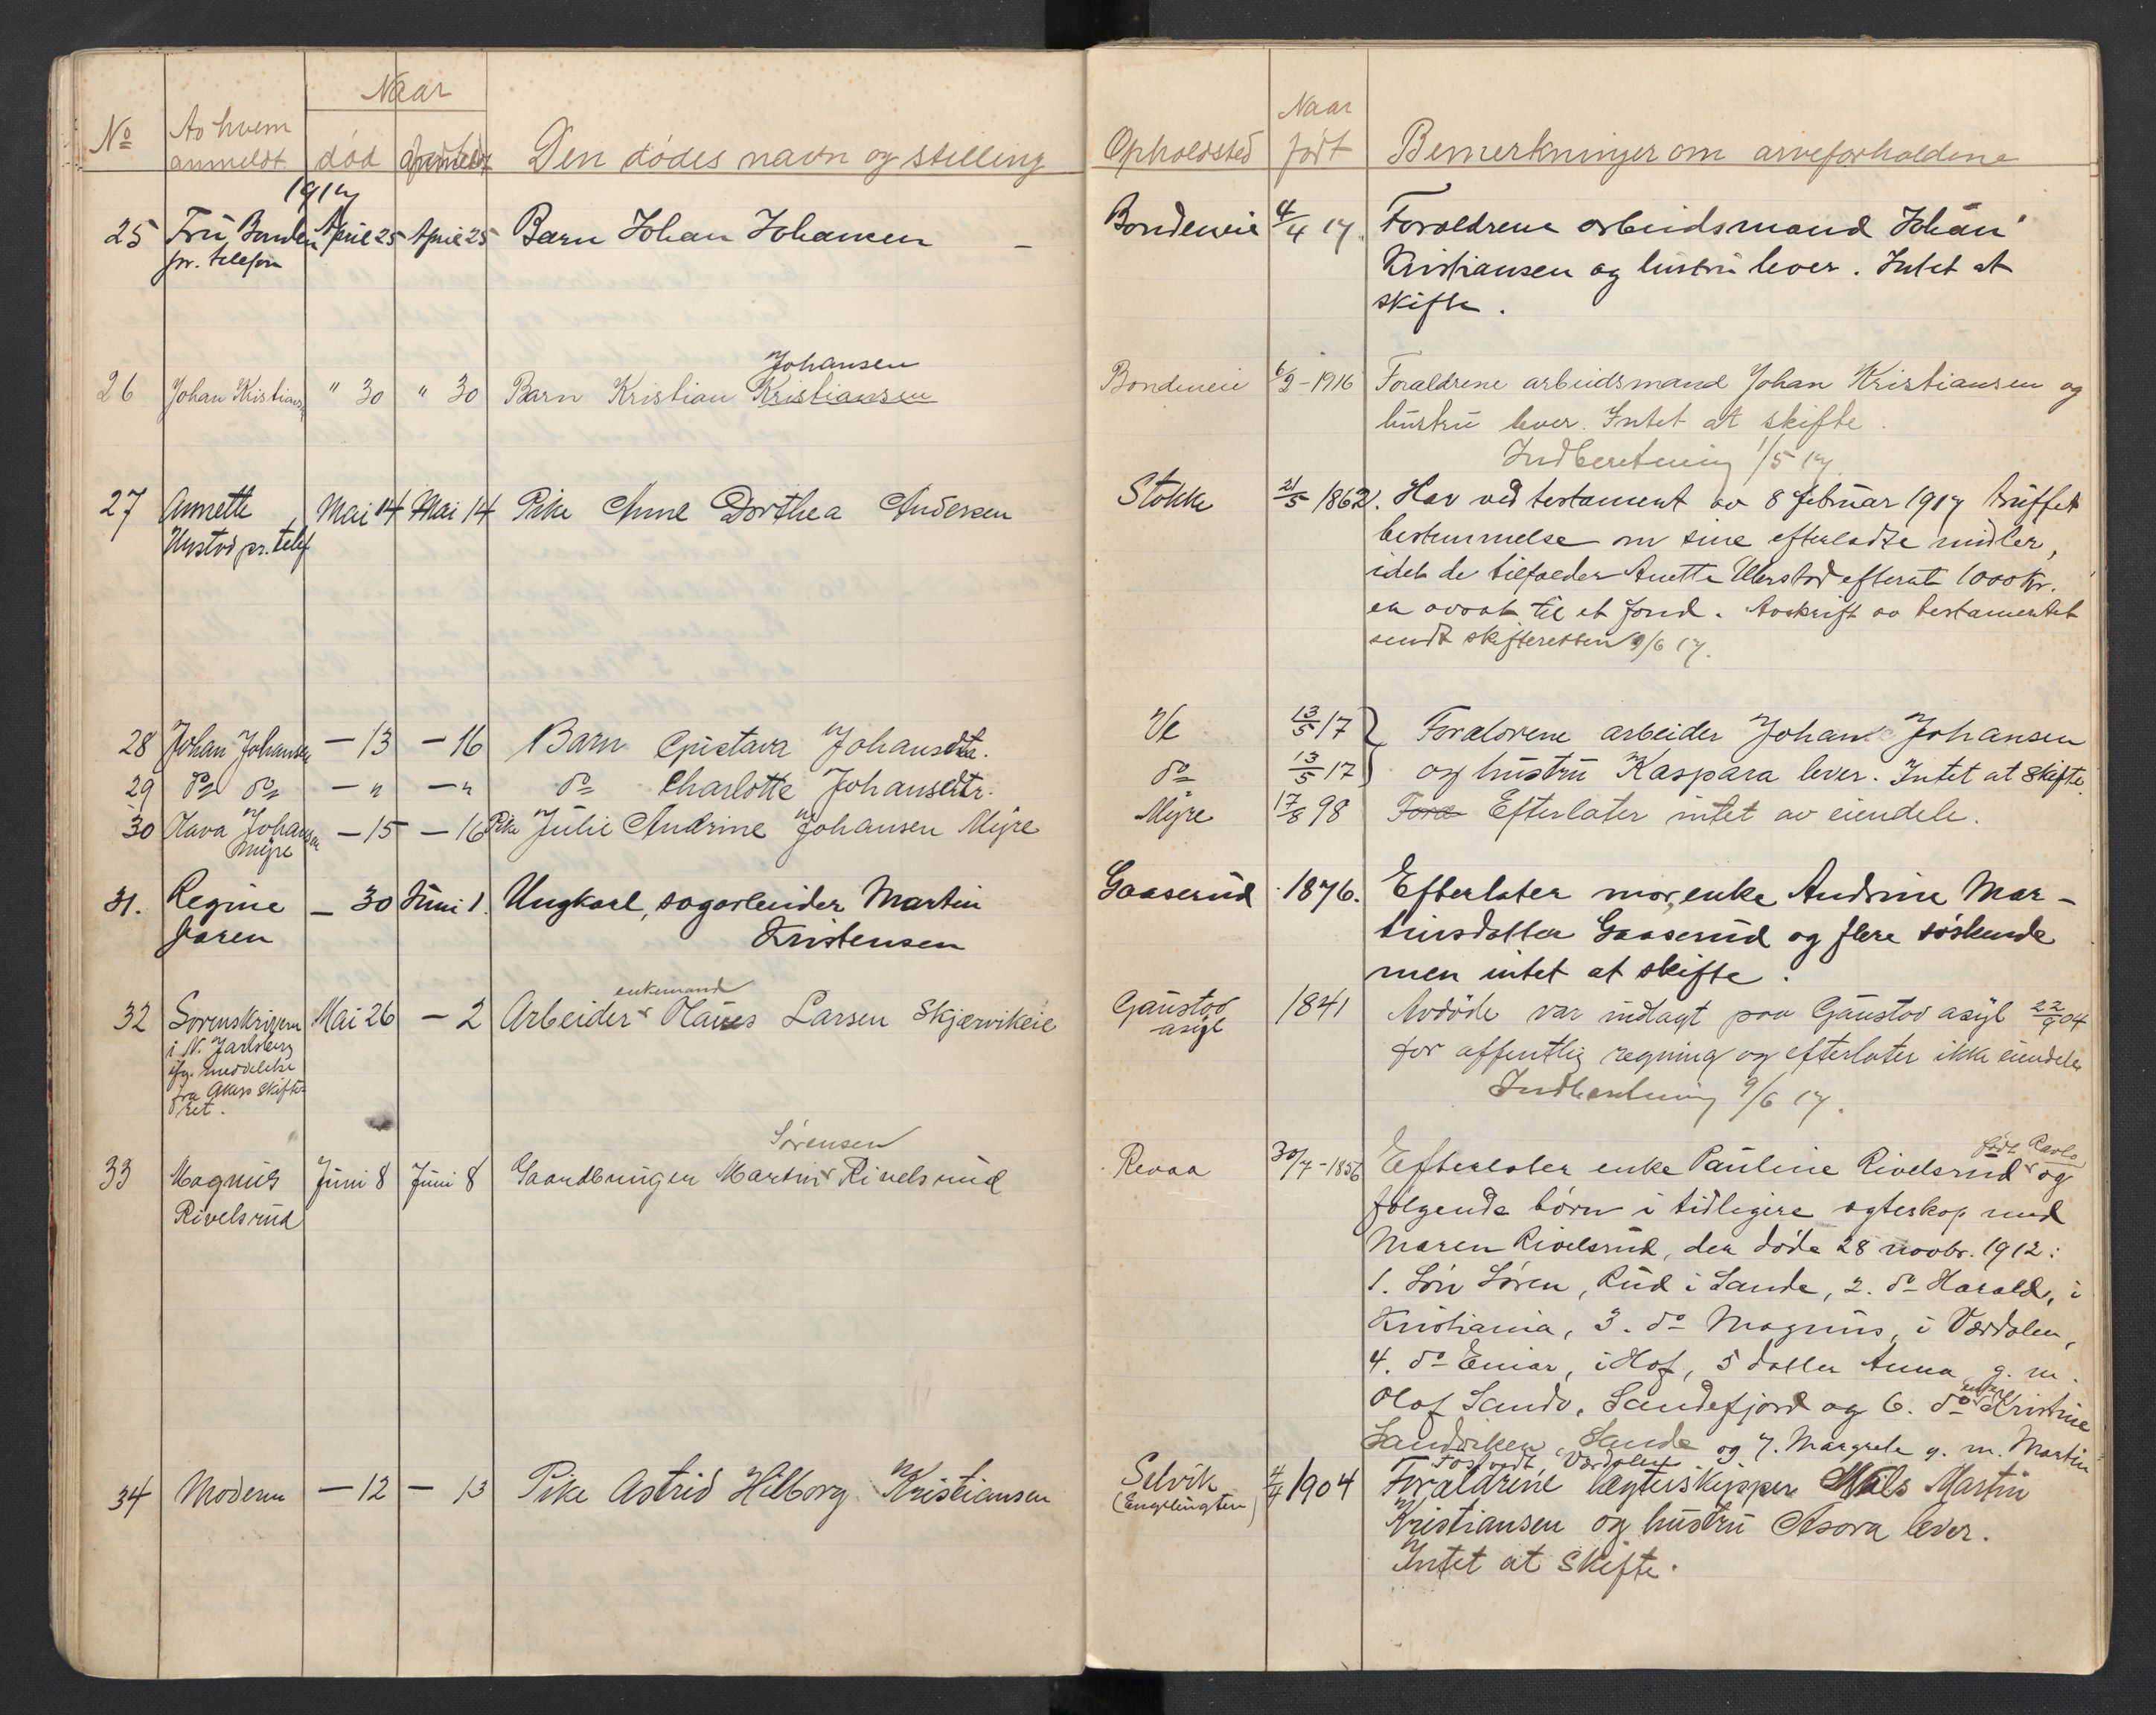 Naar
No
Av hvem
anmeldt
død
anmeldt
Den dødes navn og stilling
1917
25 Fru Bonden April 25 April 25 Barn Johan Johansen –
pr. telefon
Johansen
26 Johan Kristiansen " 30 " 30 Barn Kristian Kristiansen
27 Annette Mai 14 Mai 14 Pike Anne Dorthea Andersen
Ulrstad pr. telef
28 Johan Johansen – 13 – 16 Barn Gustava Johansdtr.
29 do do – " – " do Charlotte Johansdtr.
30 Olava Johansen – 15 – 16 Pike Julie Andrine Johansen Myre
Myre
31. Regine – 30 Juni 1. Ungkarl, sagarbeider Martin
Faren Kristensen
enkemand
32 Sorenskriveren Mai 26 – 2 Arbeider Olaves Larsen Skjærvikeie
i N. Jarlsberg
ifg. meddelelse
fra Akers skifte-
ret.
Sørensen
33 Magnus Juni 8 Juni 8 Gaardbruger Martin Rivelsrud
Rivelsrud
34 Moderen – 12 – 13 Pike Astrid Hilborg Kristiansen
Opholdsted
Naar
født
Bemerkninger om arveforholdene
Bondeneie 4/4 17. Forældrene arbeidsmand Johan
Kristiansen og hustru lever. Intet at
skifte.
Bondeneie 6/2-1916 Forældrene arbeidsmand Johan Kristiansen og
hustru lever. Intet at skifte.
Indberetning 1/5 17.
Stokke 21/5 1862. Har ved testament av 8 februar 1917 truffet
bestemmelse om sine efterladte midler,
idet de tilfalder Anette Ulerstad efterat 1000 kr.
er avsat til et fond. Avskrift av testamentet
sendt skifteretten 9/6 17.
Ve 13/5 17 Forældrene arbeider Johan Johansen
do 13/5 17 og hustru Kaspara lever. Intet at skifte.
Myre 17/8 98 Foræ Efterlater intet av eiendele.
Gaaserud 1876. Efterlater mor, enke Andrine Mar-
tinsdatter Gaaserud og flere søskende
men intet at skifte.
Gaustad 1841 Avdøde var indlagt paa Gaustad asyl 22/9 04
asyl
for offentlig regning og efterlater ikke eiendele
Indberetning 9/6 17.
født Ravlo
Revaa 30/7-1856 Efterlater enke Pauline Rivelsrud og
følgende børn i tidligere egteskap med
Maren Rivelsrud, der døde 28 novbr. 1912:
1. Søn Søren, Rud i Sande, 2. do Harald, i
Kristiania, 3. do Magnus, i Værdalen,
4. do Einar, i Hof, 5 datter Anna g. m.
Olaf Sando, Sandefjord og 6. do Kristine
Sandviken, Sande og 7. Margrete g. m. Martin
Værdalen
Selvik 4/4 1904 Forældrene lægterskipper Nils Martin
(Englingten)
Kristiansen og hustru Asora lever.
Intet at skifte.